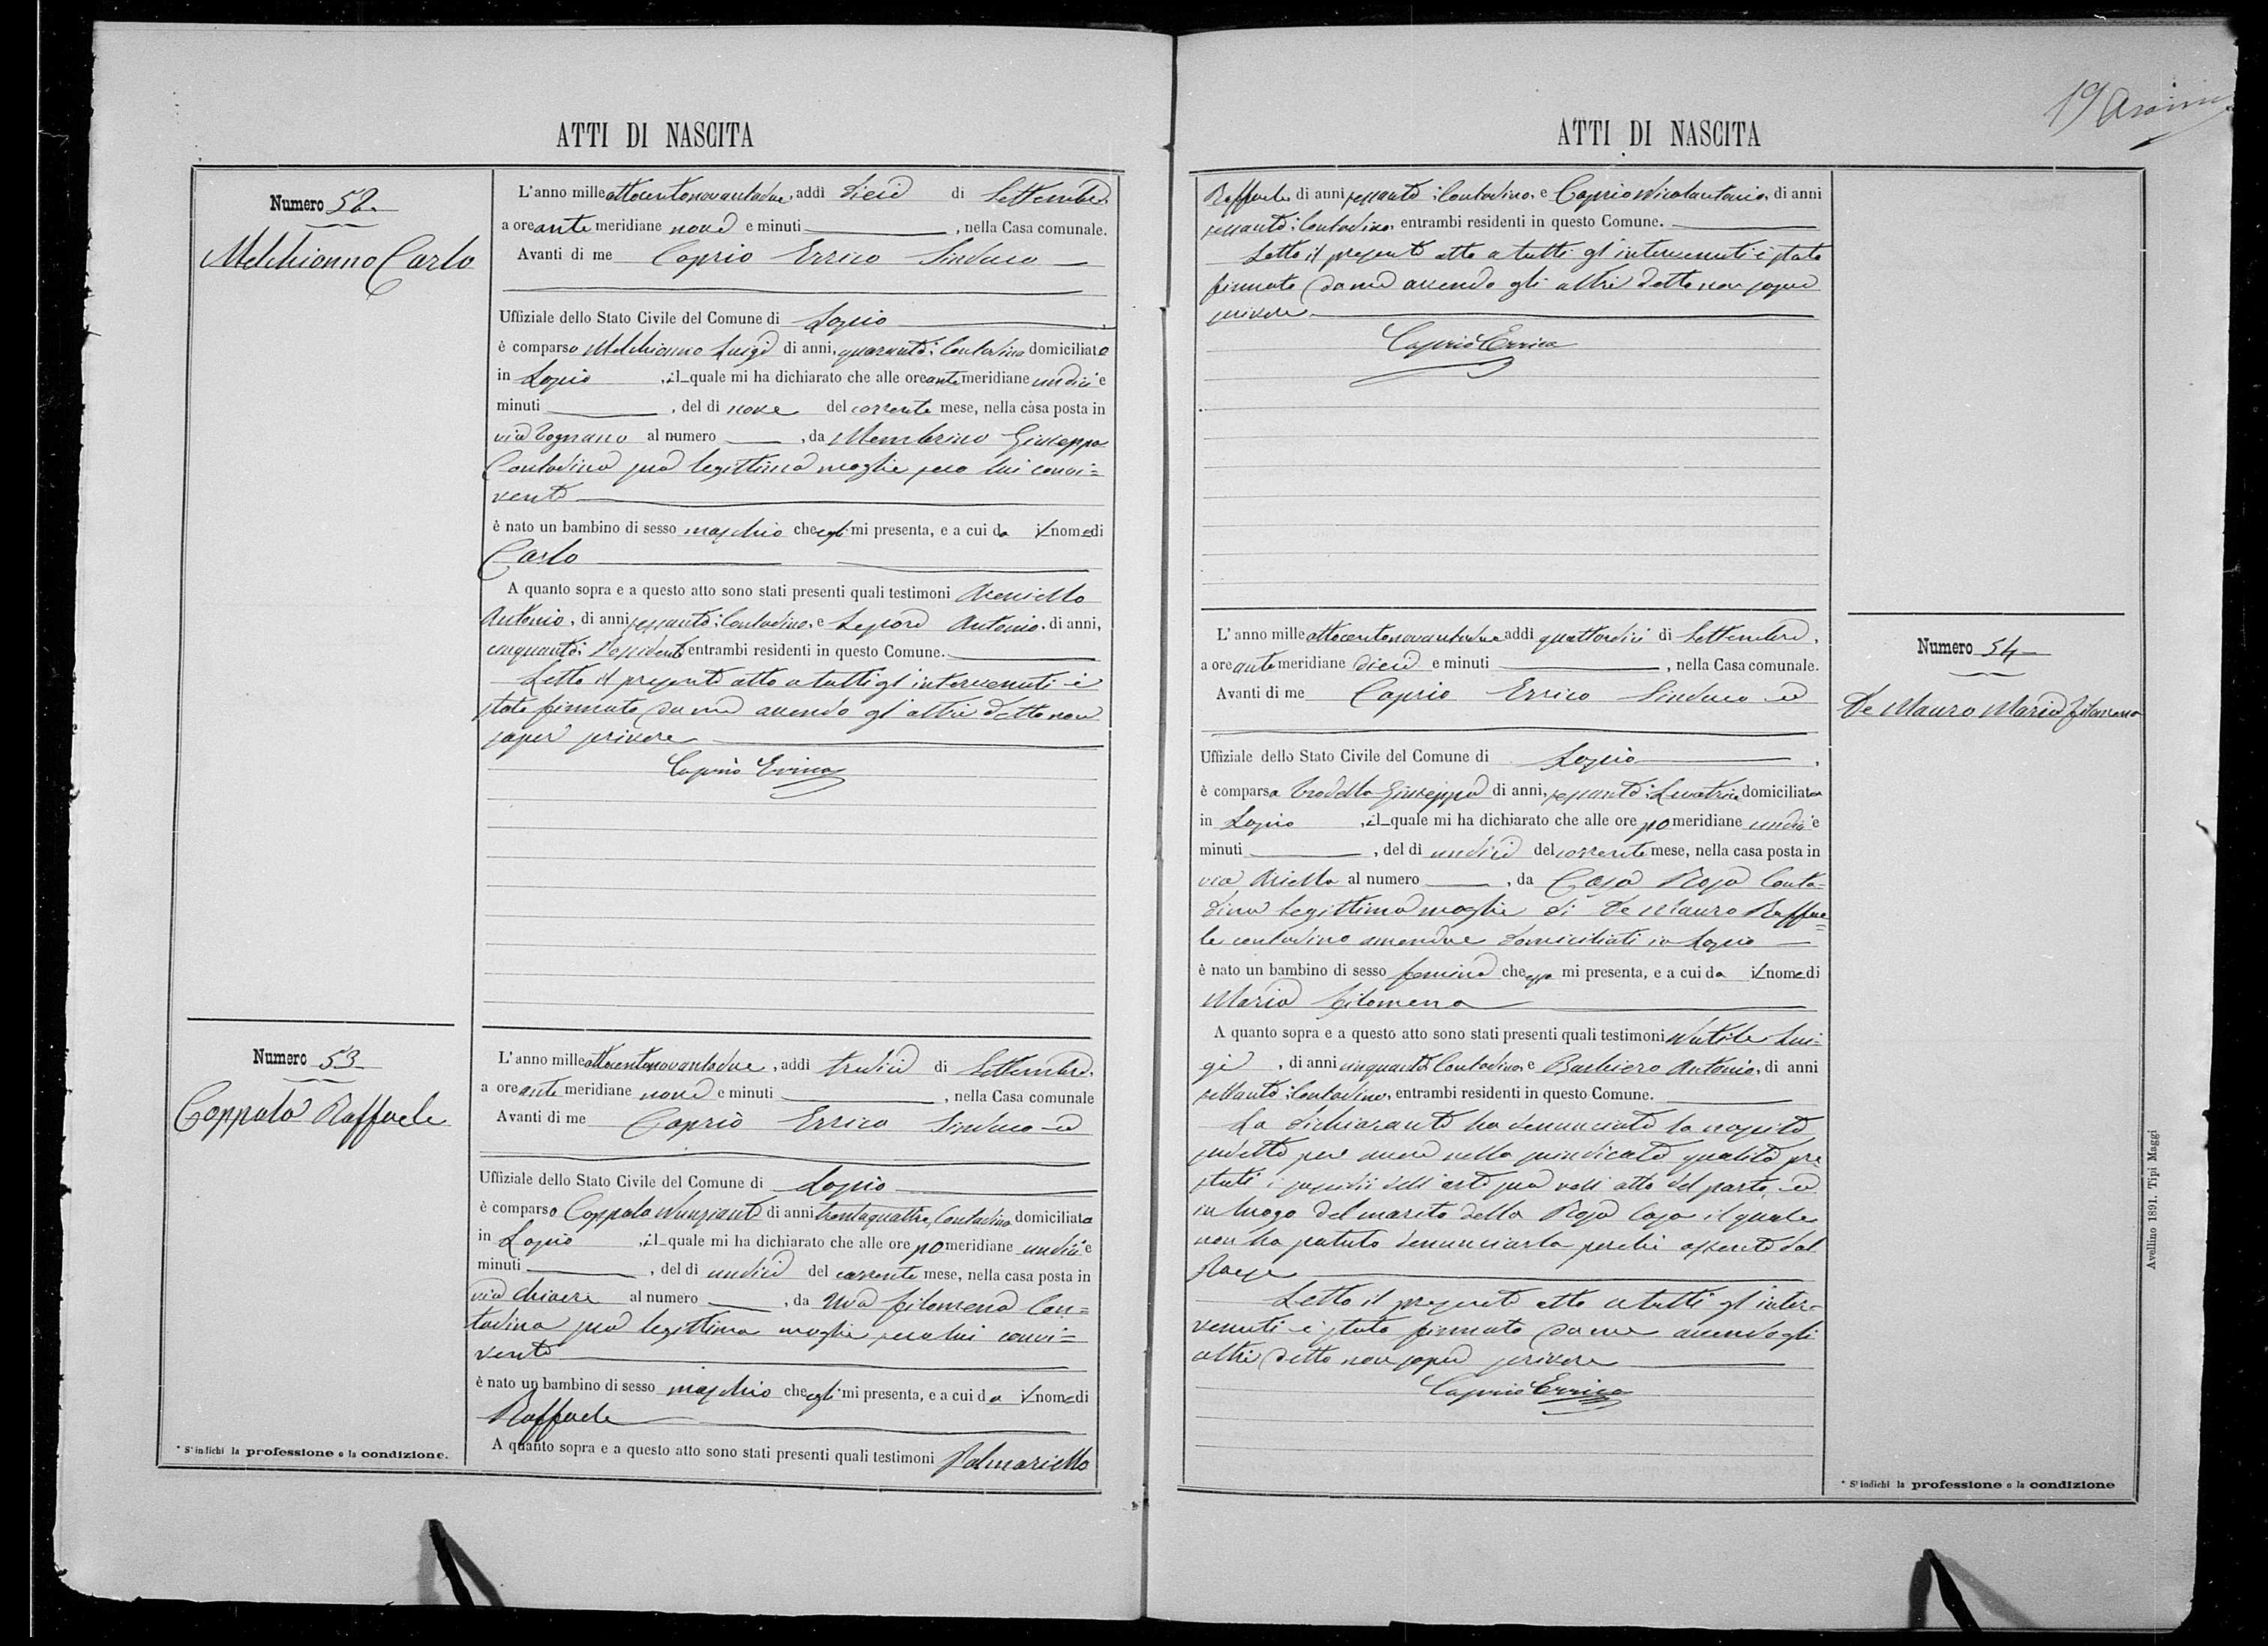 ATTI DI NASCITA
Numero 52
Melchionno Carlo
L'anno mille ottocentonovantadue, addì dieci di Settembre,
a ore ante meridiane nove e minuti , nella Casa comunale.
Avanti di me Caprio Errico Sindaco
Uffiziale dello Stato Civile del Comune di Lapio
è comparso Melchionno Luigi di anni, quaranta, Contadino domiciliato
in Lapio , il quale mi ha dichiarato che alle ore ante meridiane undici e
minuti , del dì nove del corrente mese, nella casa posta in
via Tognano al numero , da Membrino Giuseppa
Contadina sua legittima moglie seco lui convi=
vente
è nato un bambino di sesso maschio che egli mi presenta, e a cui da il nome di
Carlo
A quanto sopra e a questo atto sono stati presenti quali testimoni
Antonio, di anni sessanta, Contadino, e Lepore Antonio, di anni,
cinquanta, Possidente entrambi residenti in questo Comune.
Letto il presente atto a tutti gl'intervenuti è
stato firmato da me avendo gl'altri detto non
saper scrivere
Caprio Errico
Numero 53
Coppola Raffaele
L'anno mille ottocentonovantadue, addì tredici di Settembre,
a ore ante meridiane nove e minuti , nella Casa comunale
Avanti di me Caprio Errico Sindaco ed
Uffiziale dello Stato Civile del Comune di Lapio
è comparso Coppola Nunziante di anni trentaquattro, Contadino domiciliato
in Lapio , il quale mi ha dichiarato che alle ore po meridiane undici e
minuti , del dì undici del corrente mese, nella casa posta in
via Chiaere al numero , da Uva Filomena Con=
tadina sua legittima moglie seco lui convi=
vente
è nato un bambino di sesso maschio che egli mi presenta, e a cui da il nome di
Raffaele
A quanto sopra e a questo atto sono stati presenti quali testimoni Palmariello
* S'indichi la professione o la condizione.
19
ATTI DI NASCITA
Raffaele di anni sessanta, Contadino, e Caprio Nicolantonio, di anni
sessanta, Contadino, entrambi residenti in questo Comune.
Letto il presente atto a tutti gl'intervenuti è stato
firmato da me avendo gli altri detto non sapere
scrivere
Caprio Errico
Numero 54
De Mauro Maria Filomena
L'anno mille ottocentonovantadue addì quattordici di Settembre,
a ore ante meridiane dieci e minuti , nella Casa comunale.
Avanti di me Caprio Errico Sindaco ed
Uffiziale dello Stato Civile del Comune di Lapio ,
è comparsa Trodella Giuseppa di anni, sessanta, Levatrice domiciliata
in Lapio , il quale mi ha dichiarato che alle ore po meridiane undici e
minuti , del dì undici del corrente mese, nella casa posta in
via Ariella al numero , da Casa Rosa Conta=
dina legittima moglie di De Mauro Raffae=
le contadino amendue domiciliati in Lapio
è nato un bambino di sesso femina che essa mi presenta, e a cui da il nome di
Maria Filomena
A quanto sopra e a questo atto sono stati presenti quali testimoni Nutile Lui=
gi , di anni cinquanta, Contadino, e Barbiero Antonio, di anni
settanta, Contadino, entrambi residenti in questo Comune.
La dichiarante ha denunciato la nascita
sudetta per avere nella suindicata qualità pre
stati i sussidii dell'arte sua nell'atto del parto, ed
in luogo del marito della Rosa Casa il quale
non ha potuto denunciarla perchè assente dal
Paese
Letto il presente atto a tutti gl'inter=
venuti è stato firmato da me avendo gli
altri detto non sapere scrivere
Caprio Errico
Avellino 1891. Tipi Maggi
* S'indichi la professione o la condizione